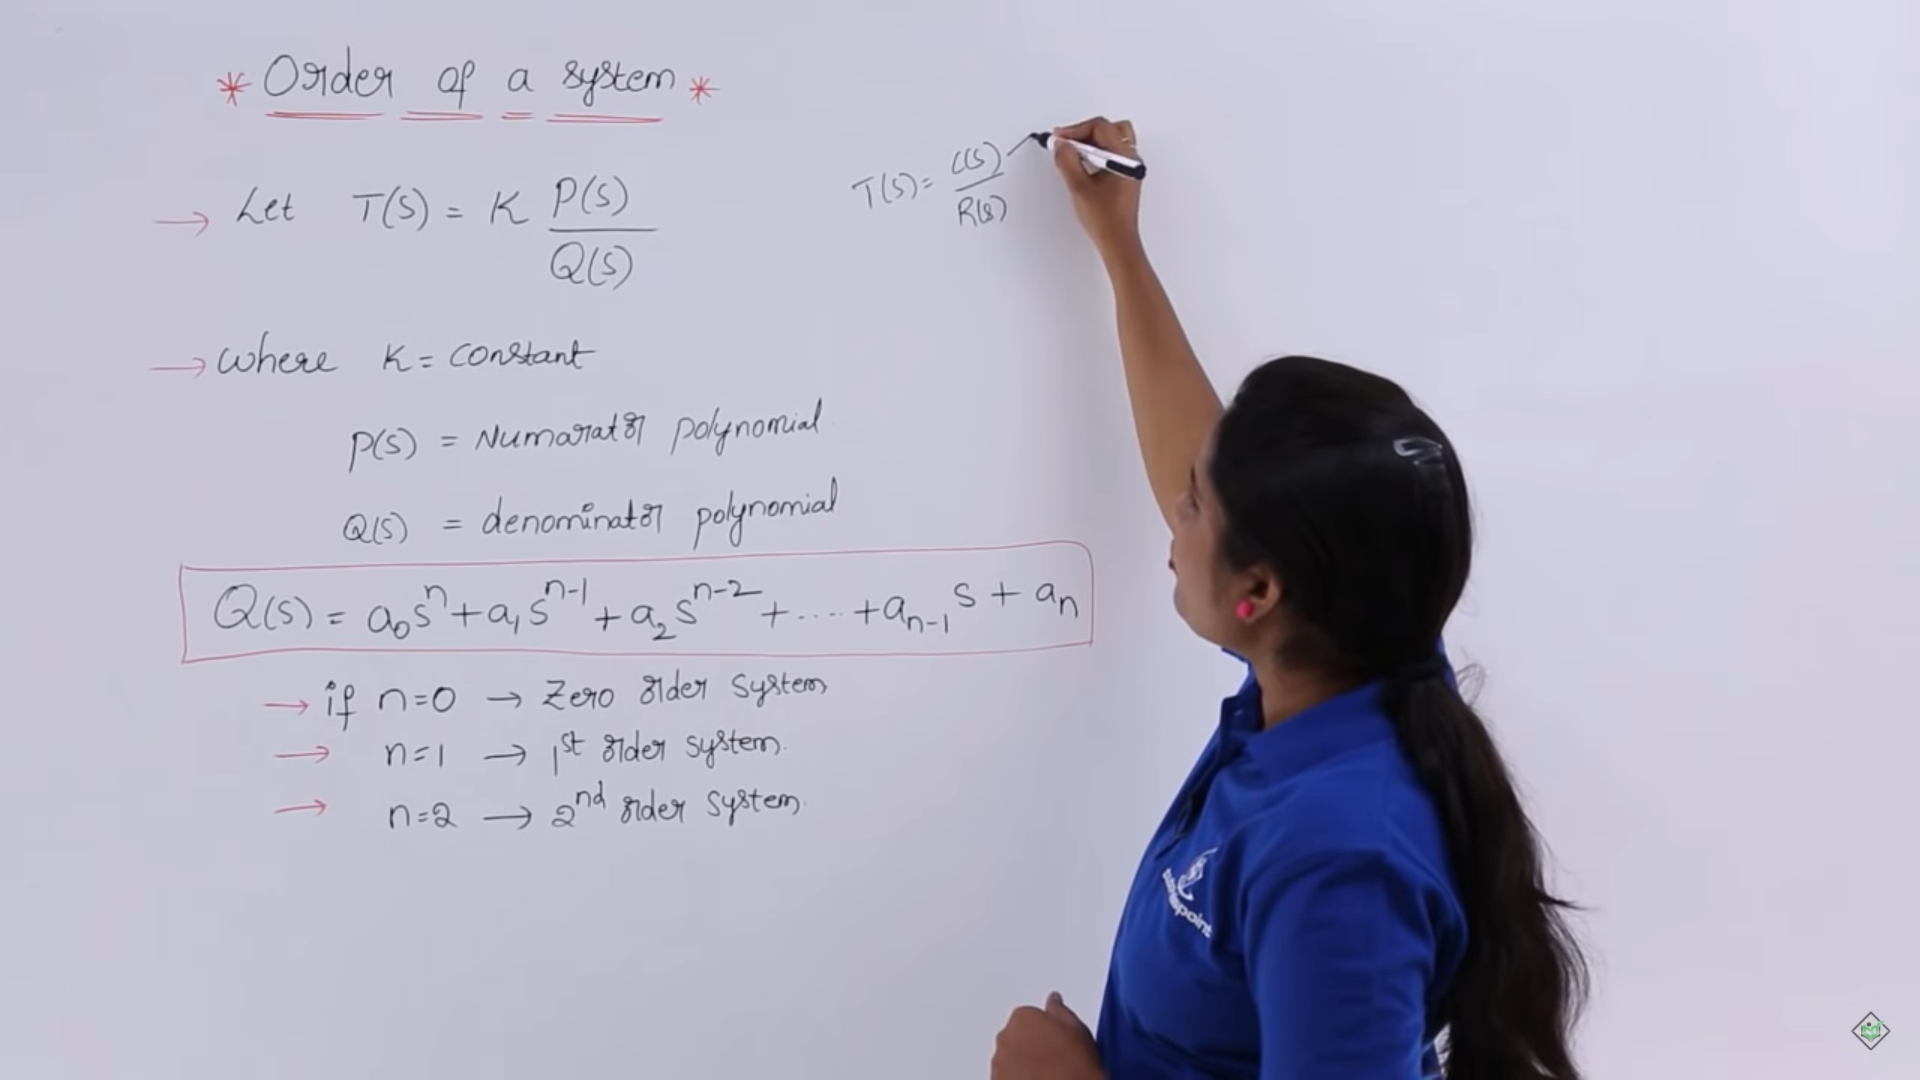 * Order of a system *
→ Let T(S) = K P(S) / Q(S)
T(S) = C(S) / R(S)
→ Where K = Constant
P(S) = Numarator polynomial
Q(S) = denominator polynomial
Q(S) = a₀sⁿ + a₁sⁿ⁻¹ + a₂sⁿ⁻² + .... + aₙ₋₁ s + aₙ
→ if n=0 → Zero order system
→ n=1 → 1st order system.
→ n=2 → 2nd order system.